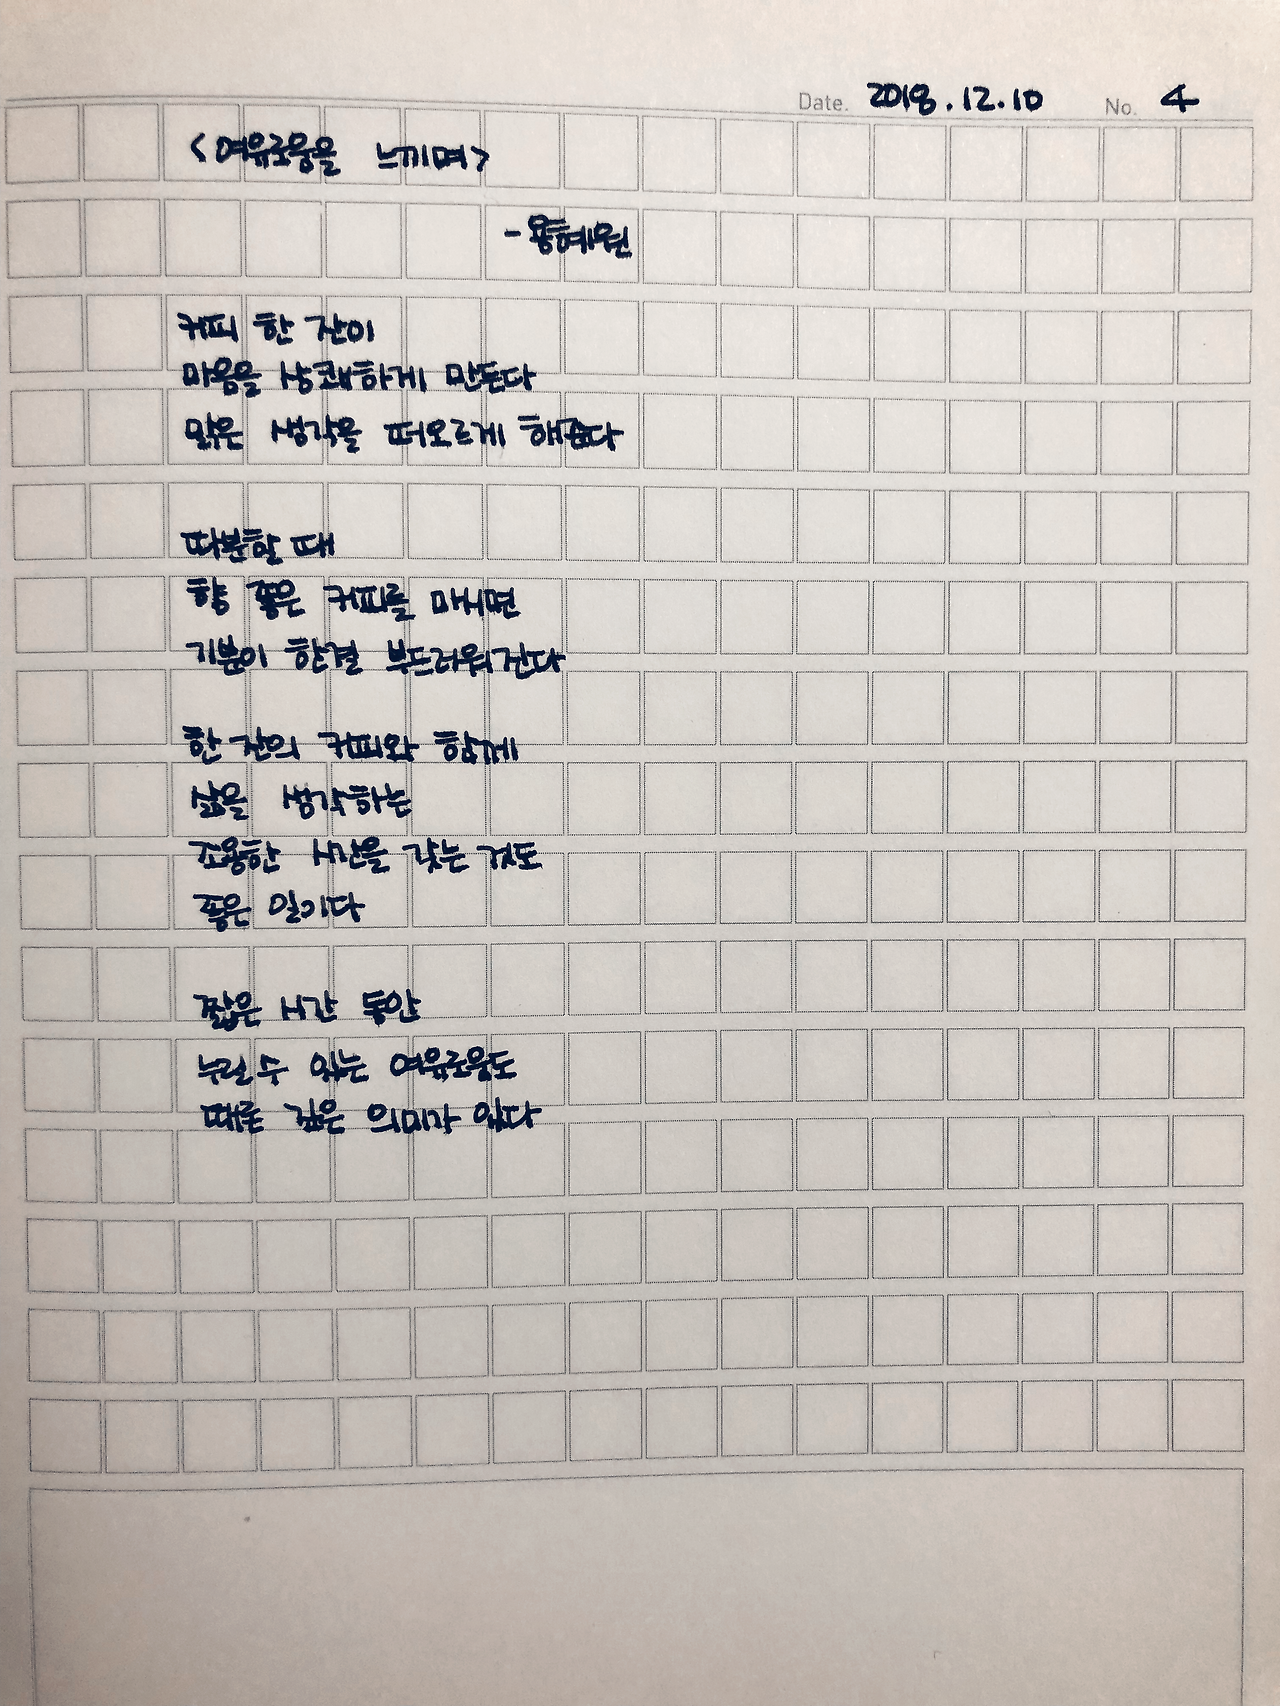 Date. 2018.12.10 No. 4
<여유로움을 느끼며>
- 용혜원
커피 한 잔이
마음을 상쾌하게 만든다
맑은 생각을 떠오르게 해준다
따분할 때
향 좋은 커피를 마시면
기분이 한결 부드러워진다
한 잔의 커피와 함께
삶을 생각하는
조용한 시간을 갖는 것도
좋은 일이다
짧은 시간 동안
누릴 수 있는 여유로움도
때로 깊은 의미가 있다